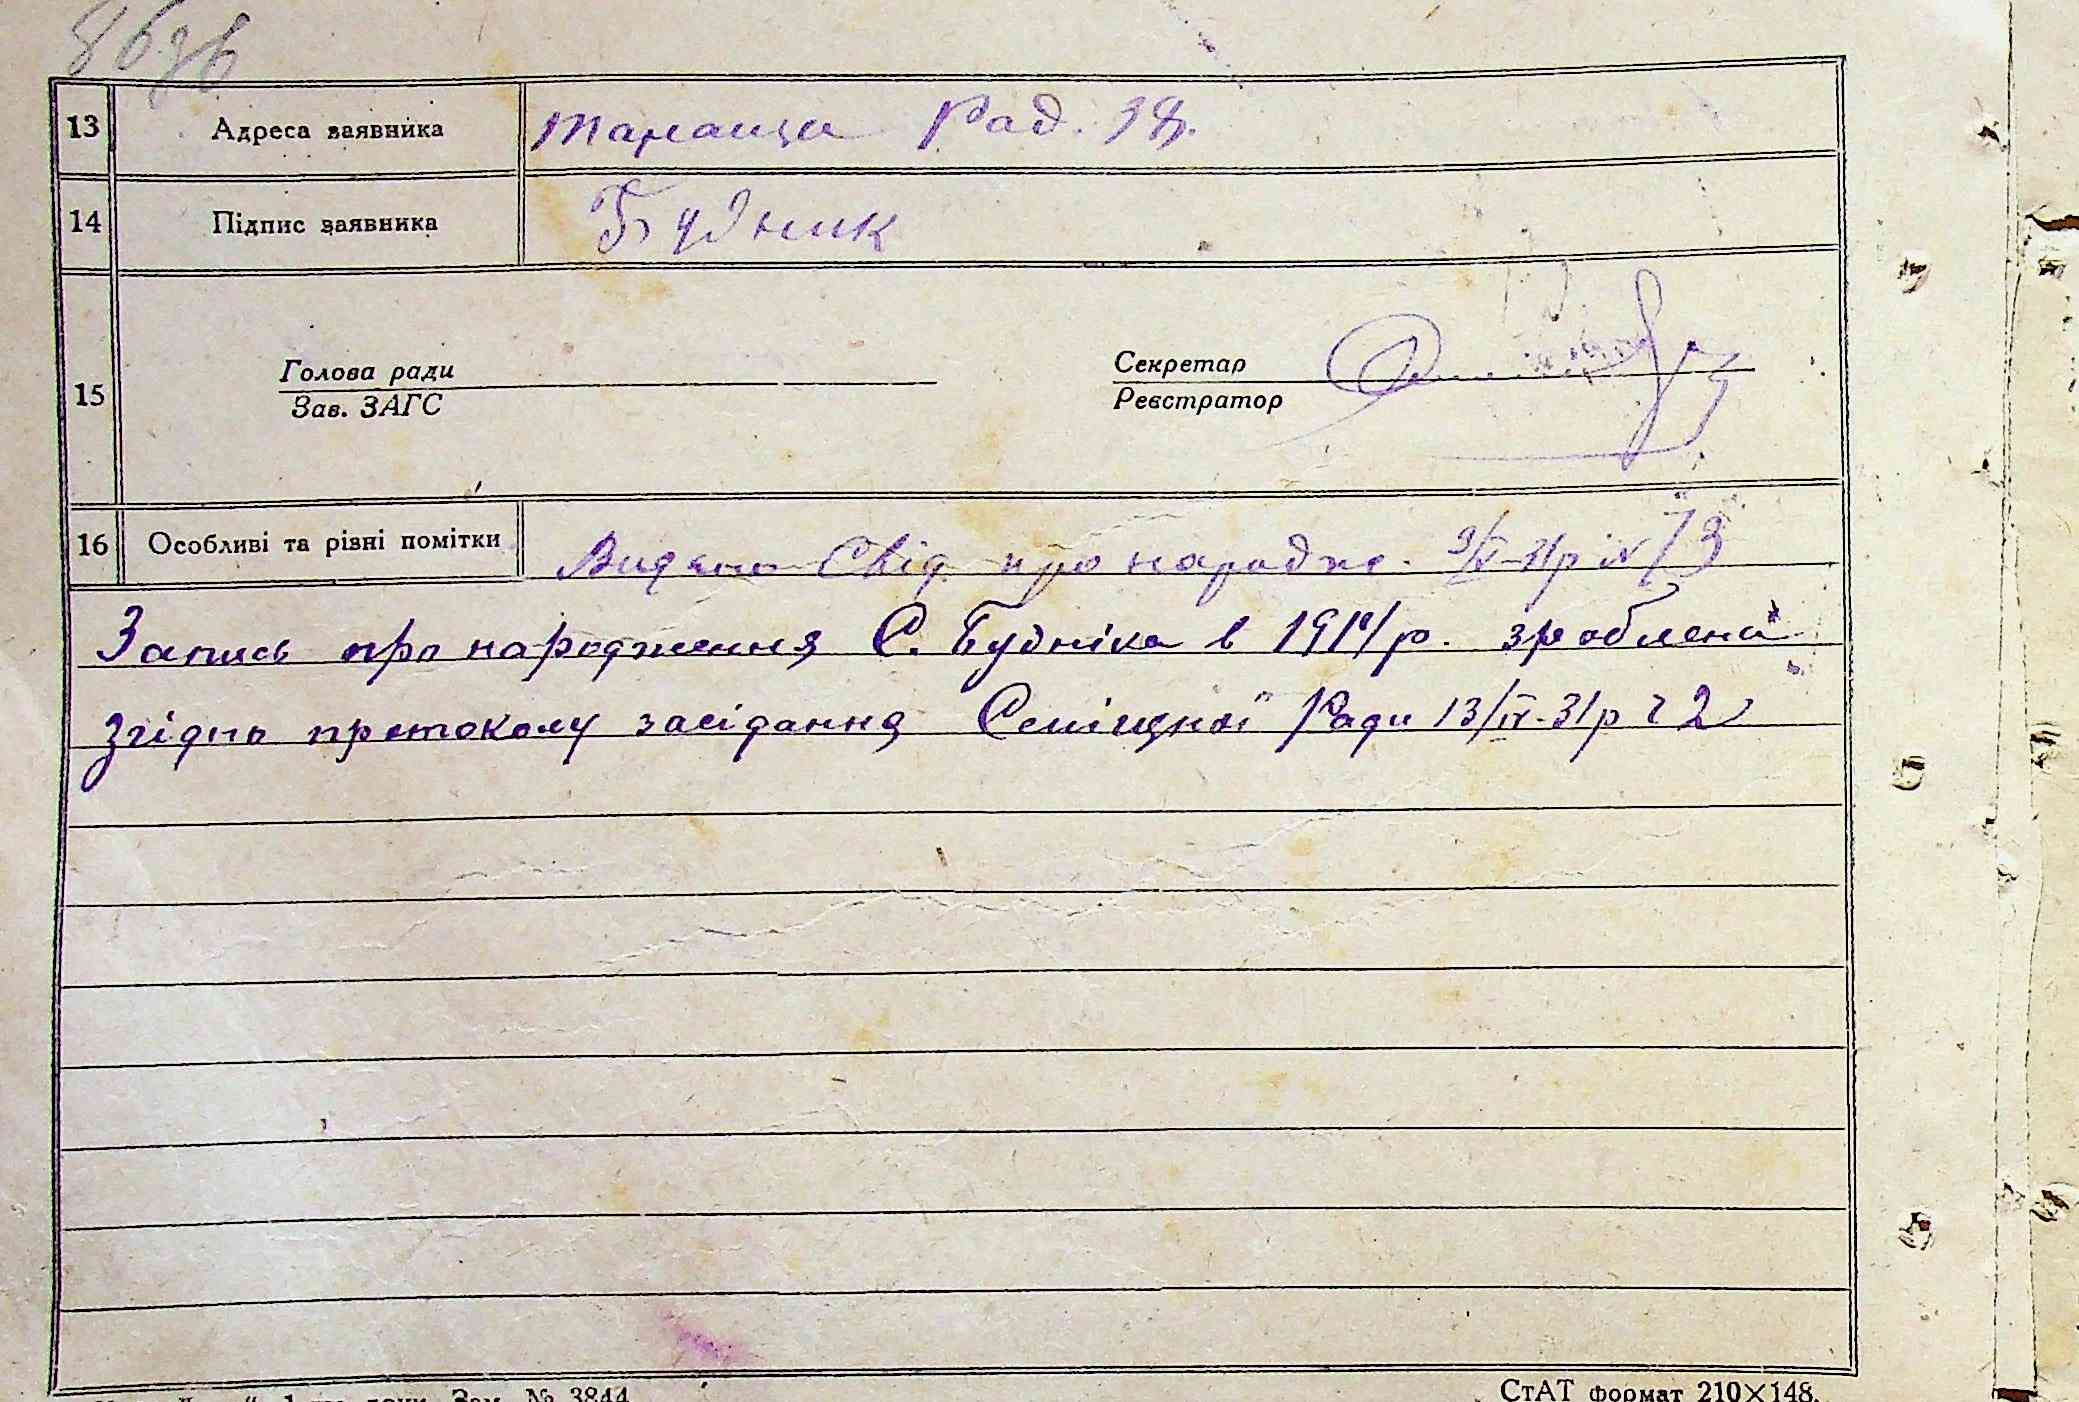 13 Адреса заявника Тараща Рад. 38.
14 Підпис заявника Будник
15
Голова ради Секретар
Зав. ЗАГС Реєстратор
16 Особливі та різні помітки Видано Свід про народже. 9/IV-31р № 73
Запись про народження С. Будніка в 1911/р. зроблена
згідно протокому засідання Селіщної Ради 13/IV-31р ч 2
Зам. № 3844
СтАТ формат 210×148.